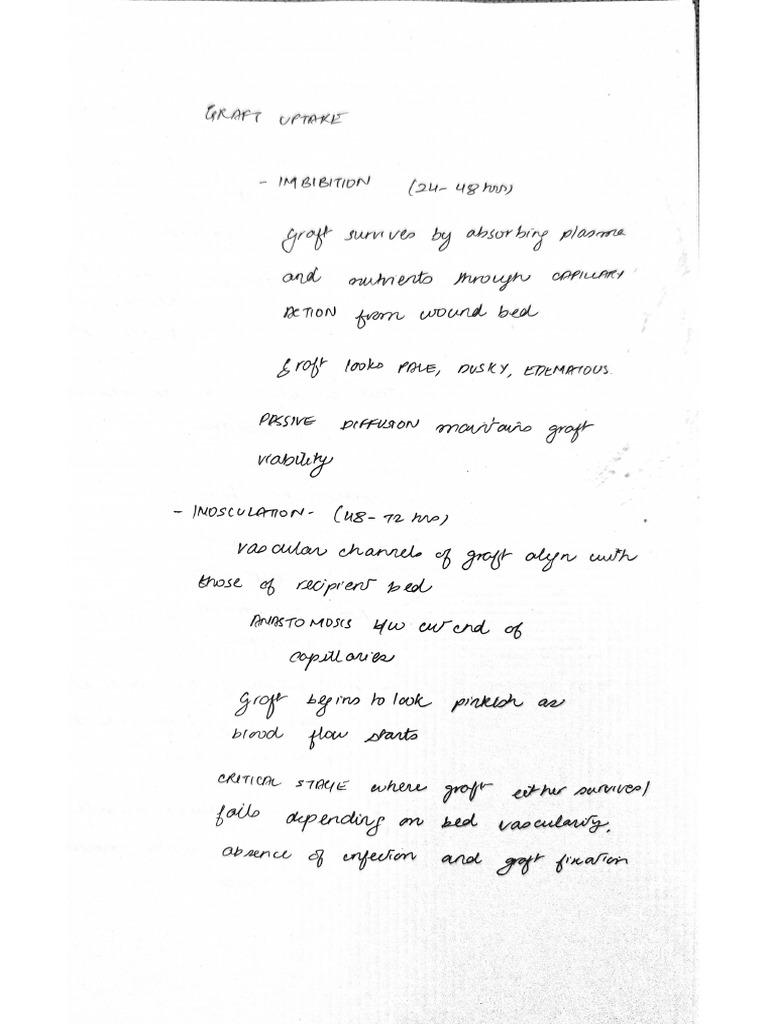 GRAFT UPTAKE
- IMBIBITION (24-48 hrs)
Graft survives by absorbing plasma
and nutrients through CAPILLARY
ACTION from wound bed
Graft looks PALE, DUSKY, EDEMATOUS.
PASSIVE DIFFUSION maintains graft
viability
- INOSCULATION - (48-72 hrs)
vascular channels of graft align with
those of recipient bed
ANASTOMOSIS b/w cut end of
capillaries
Graft begins to look pinkish as
blood flow starts
CRITICAL STAGE where graft either survives/
fails depending on bed vascularity,
absence of infection and graft fixation